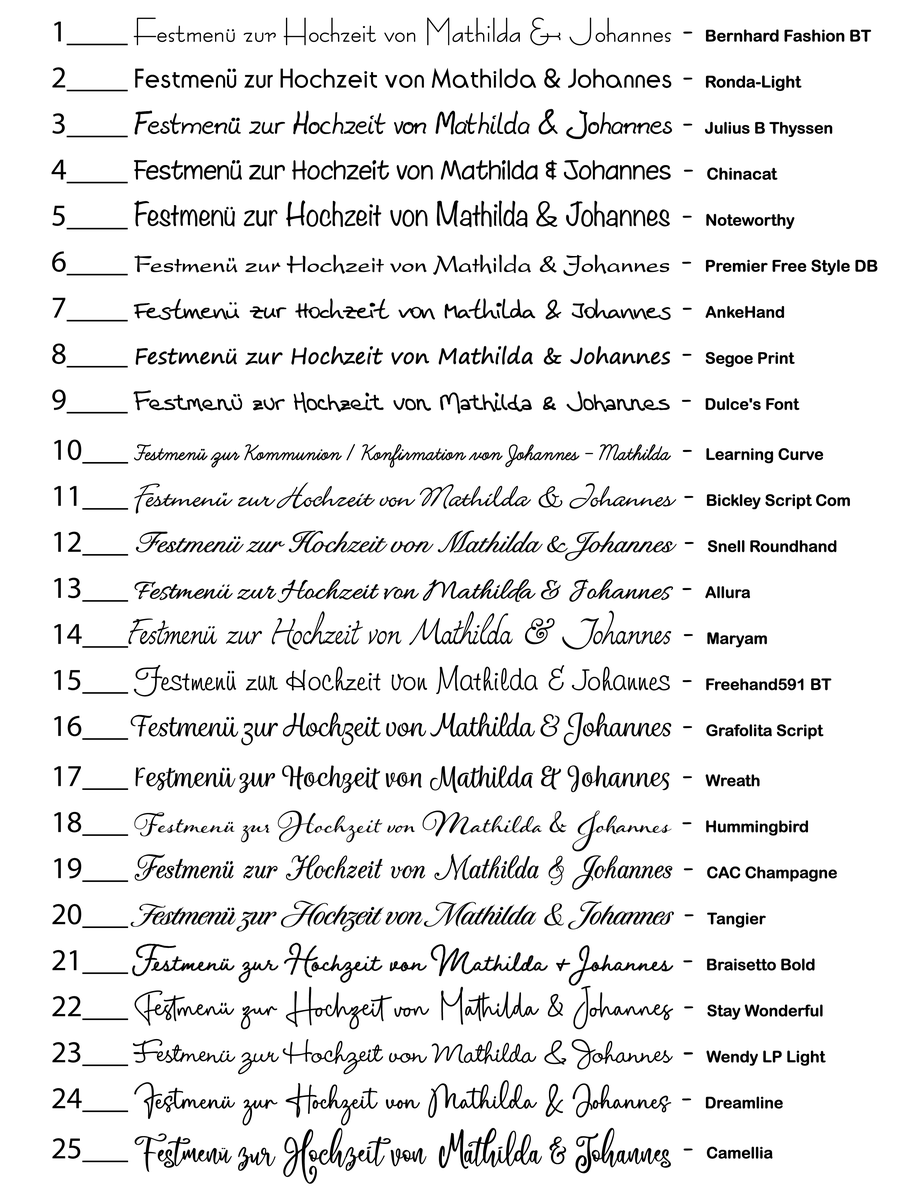 1_____ Festmenü zur Hochzeit von Mathilda & Johannes - Bernhard Fashion BT
2_____ Festmenü zur Hochzeit von Mathilda & Johannes - Ronda-Light
3_____ Festmenü zur Hochzeit von Mathilda & Johannes - Julius B Thyssen
4_____ Festmenü zur Hochzeit von Mathilda & Johannes - Chinacat
5_____ Festmenü zur Hochzeit von Mathilda & Johannes - Noteworthy
6_____ Festmenü zur Hochzeit von Mathilda & Johannes - Premier Free Style DB
7_____ Festmenü zur Hochzeit von Mathilda & Johannes - AnkeHand
8_____ Festmenü zur Hochzeit von Mathilda & Johannes - Segoe Print
9_____ Festmenü zur Hochzeit von Mathilda & Johannes - Dulce's Font
10____ Festmenü zur Kommunion / Konfirmation von Johannes - Mathilda - Learning Curve
11____ Festmenü zur Hochzeit von Mathilda & Johannes - Bickley Script Com
12____ Festmenü zur Hochzeit von Mathilda & Johannes - Snell Roundhand
13____ Festmenü zur Hochzeit von Mathilda & Johannes - Allura
14____ Festmenü zur Hochzeit von Mathilda & Johannes - Maryam
15____ Festmenü zur Hochzeit von Mathilda & Johannes - Freehand591 BT
16____ Festmenü zur Hochzeit von Mathilda & Johannes - Grafolita Script
17____ Festmenü zur Hochzeit von Mathilda & Johannes - Wreath
18____ Festmenü zur Hochzeit von Mathilda & Johannes - Hummingbird
19____ Festmenü zur Hochzeit von Mathilda & Johannes - CAC Champagne
20____ Festmenü zur Hochzeit von Mathilda & Johannes - Tangier
21____ Festmenü zur Hochzeit von Mathilda + Johannes - Braisetto Bold
22____ Festmenü zur Hochzeit von Mathilda & Johannes - Stay Wonderful
23____ Festmenü zur Hochzeit von Mathilda & Johannes - Wendy LP Light
24____ Festmenü zur Hochzeit von Mathilda & Johannes - Dreamline
25____ Festmenü zur Hochzeit von Mathilda & Johannes - Camellia